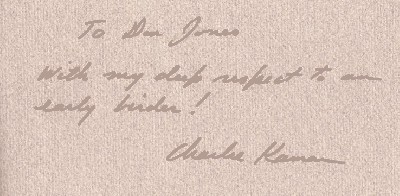 To Dee Jones
With my deep respect to an
early birder!
Charlie Kaman